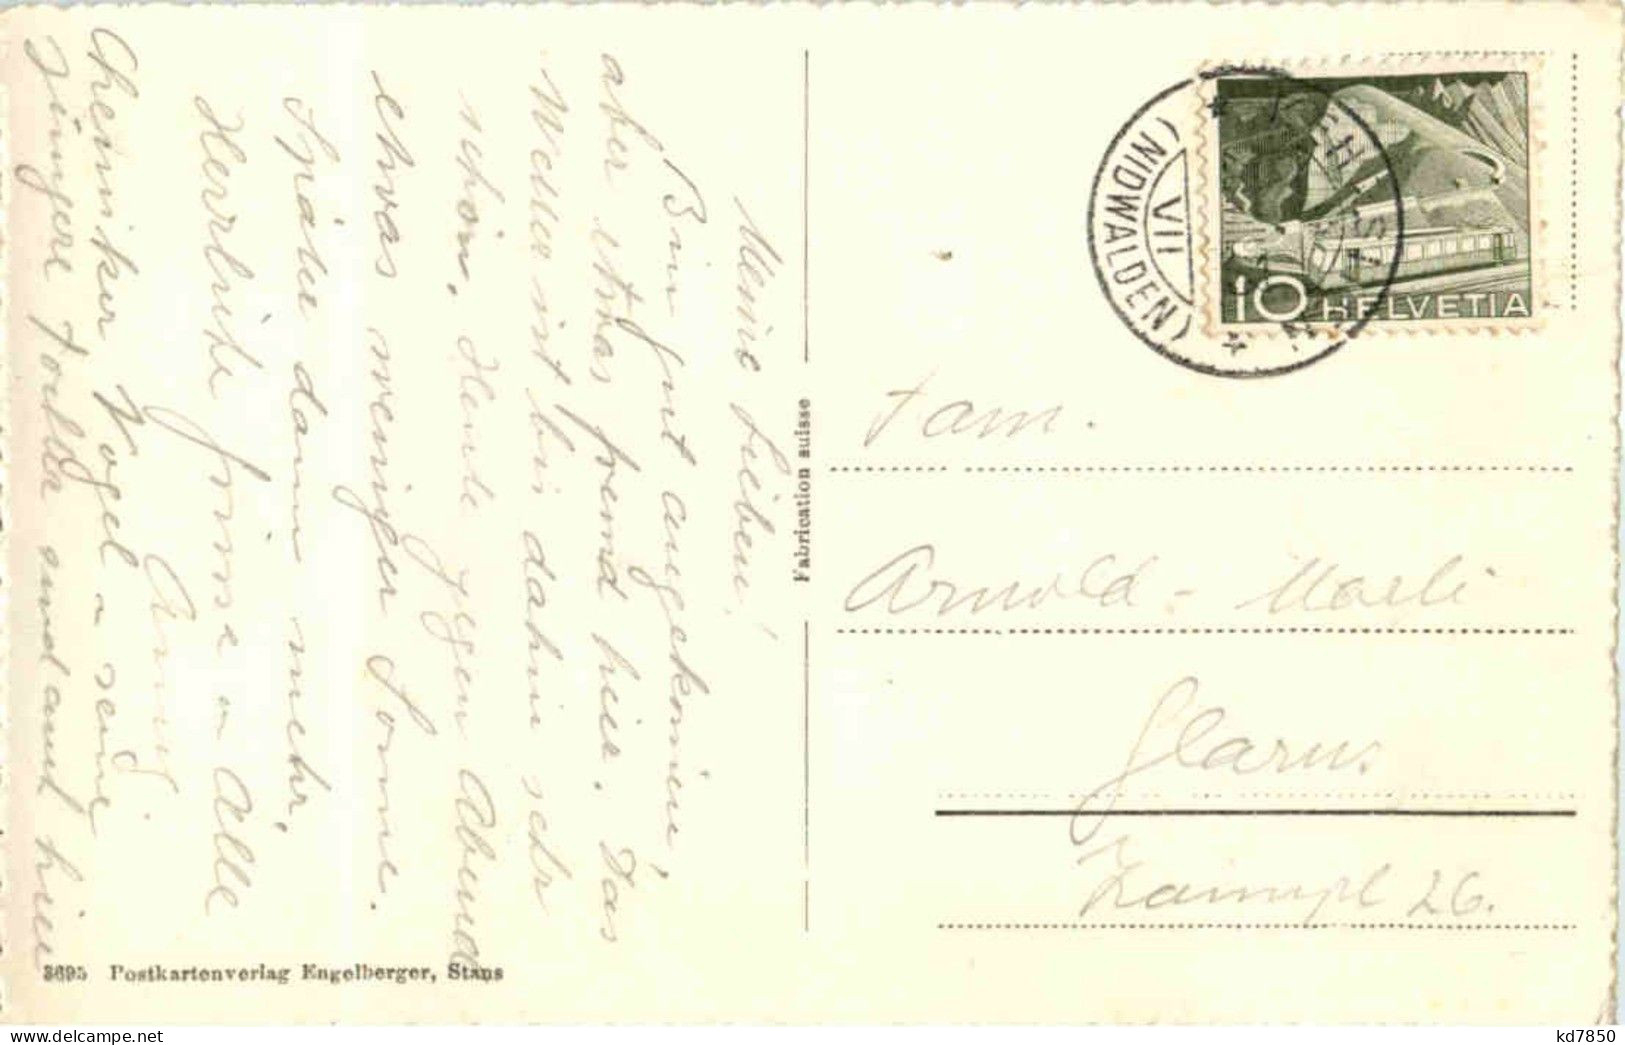 Meine Lieben!
Bin gut angekomen,
aber etwas fremd hier. Das
Wetter ist bis dahin sehr
schön. Heute gegen Abend
etwas weniger Sonne.
Später dann mehr.
Herzliche Grüsse an Alle
Chemiker Vogel u. seine
jüngere Tochter sind auch hier
3695 Postkartenverlag Engelberger, Stans
Fabrication suisse
(NIDWALDEN)
VII
10 HELVETIA
Fam.
Arnold - Marti
Glarus
26.
kd7850